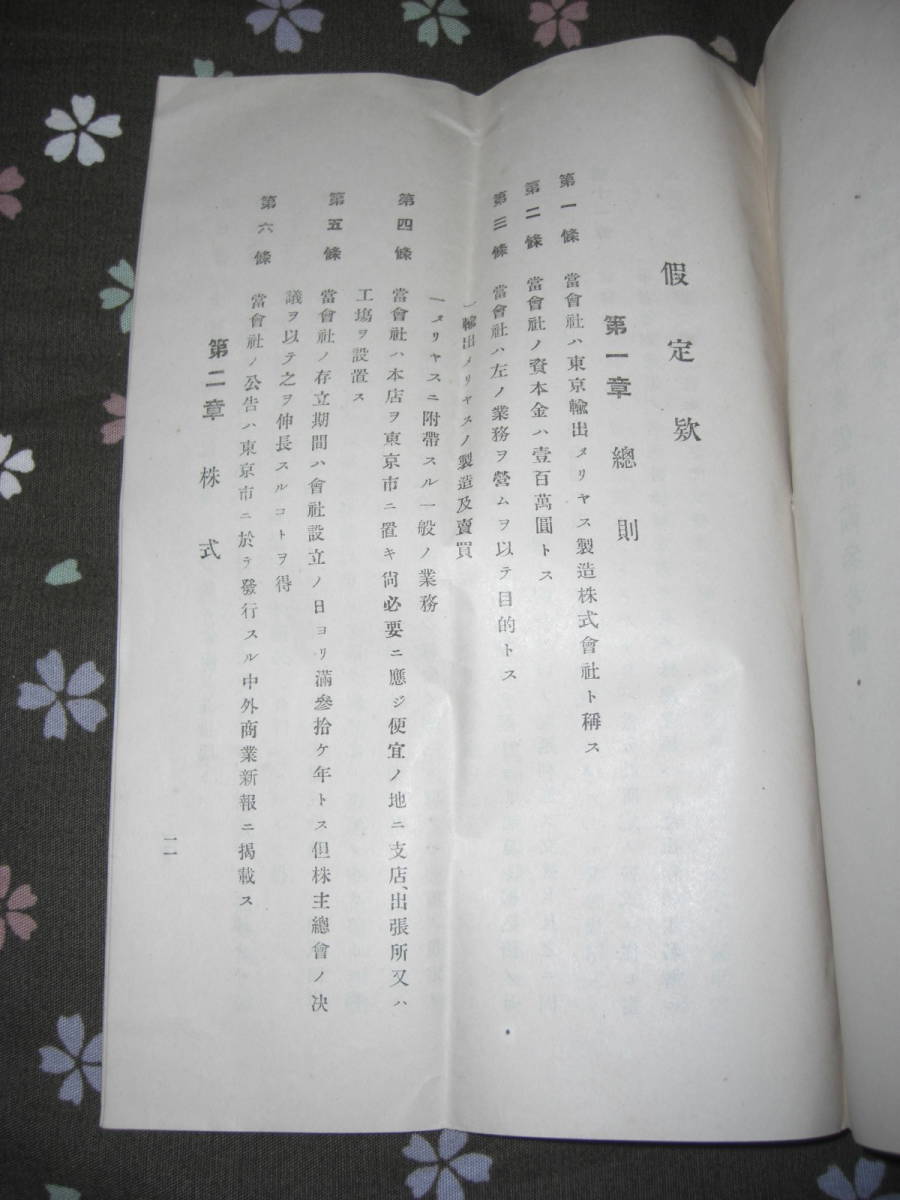 假定欵
第一章 總則
第一條 當會社ハ東京輸出メリヤス製造株式會社ト稱ス
第二條 當會社ノ資本金ハ壹百萬圓トス
第三條 當會社ハ左ノ業務ヲ營ムヲ以テ目的トス
一輸出メリヤスノ製造及賣買
一メリヤスニ附帶スル一般ノ業務
第四條 當會社ハ本店ヲ東京市ニ置キ尙必要ニ應ジ便宜ノ地ニ支店、出張所又ハ
工塲ヲ設置ス
第五條 當會社ノ存立期間ハ會社設立ノ日ヨリ滿參拾ケ年トス但株主總會ノ决
議ヲ以テ之ヲ伸長スルコトヲ得
第六條 當會社ノ公告ハ東京市ニ於テ發行スル中外商業新報ニ揭載ス
第二章 株式
一一